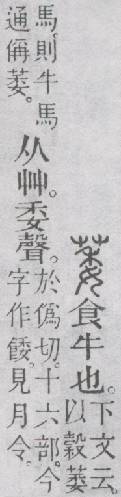 萎食牛也。
下文云。
以穀萎
馬。則牛馬
通偁萎。
从艸。委聲。
於僞切。十六部。今
字作餧。見月令。